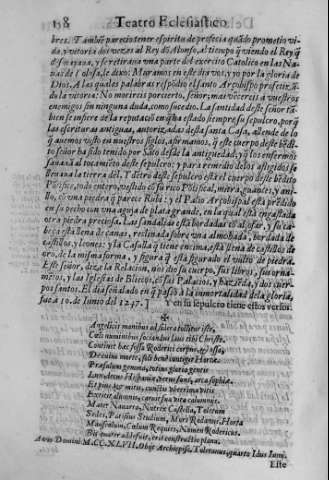 158 Teatro Eclesiastico
bres. Tambiē parecio tener espiritu de profecia quādo prometio vi-
da, y vitoria dos vezes al Rey dō Alonso, al tiempo q̄ viendo el Rey q̄
desmayaua, y se retiraua vna parte del exercito Catolico en las Na-
uas de Tolosa, le dixo: Muramos en este dia vos, y yo por la gloria de
Dios. A las quales palabras respōdio el santo Arçobispo profetizā-
do la vitoria: No morireis por cierto, señor, mas vēcereis a vuestros
enemigos sin ninguna duda, como sucedio. La santidad deste señor tā-
bien se infiere de la reputaciō en q̄ ha estado siempre su sepulcro, por q̄
las escrituras antiguas, autorizadas desta santa Casa, allende de lo
q̄ auemos visto en nuestros siglos, afirmamos, q̄ este cuerpo deste bēdi-
to señor ha sido tenido por Sāto desde la antiguedad, y q̄ los enfermos
sanauā al tocamiēto deste sepulcro: y para remedio de los afligidos se
lleuauā la tierra del. Y dētro deste sepulcro estā el cuerpo deste bēdito
Pōtifice, todo entero, vestido cō su rico Pōtifical, mitra, guantes, y ani-
llo, cō vna piedra q̄ parece Rubi: y el Palio Arçobispal estā prēdido
en su pecho con vna aguja de plata grande, en la qual estā engastada
otra piedra preciosa. Las sandalias estā bordadas cō aljofar, y su ca-
beça estā llena de canas, reclinada sobre vna almohada, bordada de
Castillos, y leones: y la Casulla q̄ tiene encima, estā llena de castillos de
oro, de la misma forma, y figura q̄ estā figurado el vulto de piedra.
Este señor, dize la Relacion, nos dio su cuerpo, sus libros, sus orna-
mentos, y las Iglesias de Bliecos, cō sus Palacios, y hazēda, y dos cuer-
pos santos. El dia señalado en q̄ passò a la inmortalidad de la gloria,
fue a 10. de Iunio del 1247.] Y en su sepulcro tiene estos versos.
Angelicis manibus ad sidera tollitur iste,
Cœli numinibus sociandus luce tibi Christe.
Continet hæc fossa Roderici corpus, & ossa,
Decuius morte, soli bene contigit Horta.
Præsulum gemma, totius gloria gentis
Laus decus Hispaniæ
Et pius, & mitis, cunctis
Mater Nauarra, Nutrix Castella, Toletum
Sedes, Parisius Studium, Mors Rodanus, Horta
Mausoleum, Cœlum Requies, Nomen Rodericus.
Anno Domini M.CC.XLVII. Obijt Archiepisc. Toletanus, quarto Idus Iunij.
Este